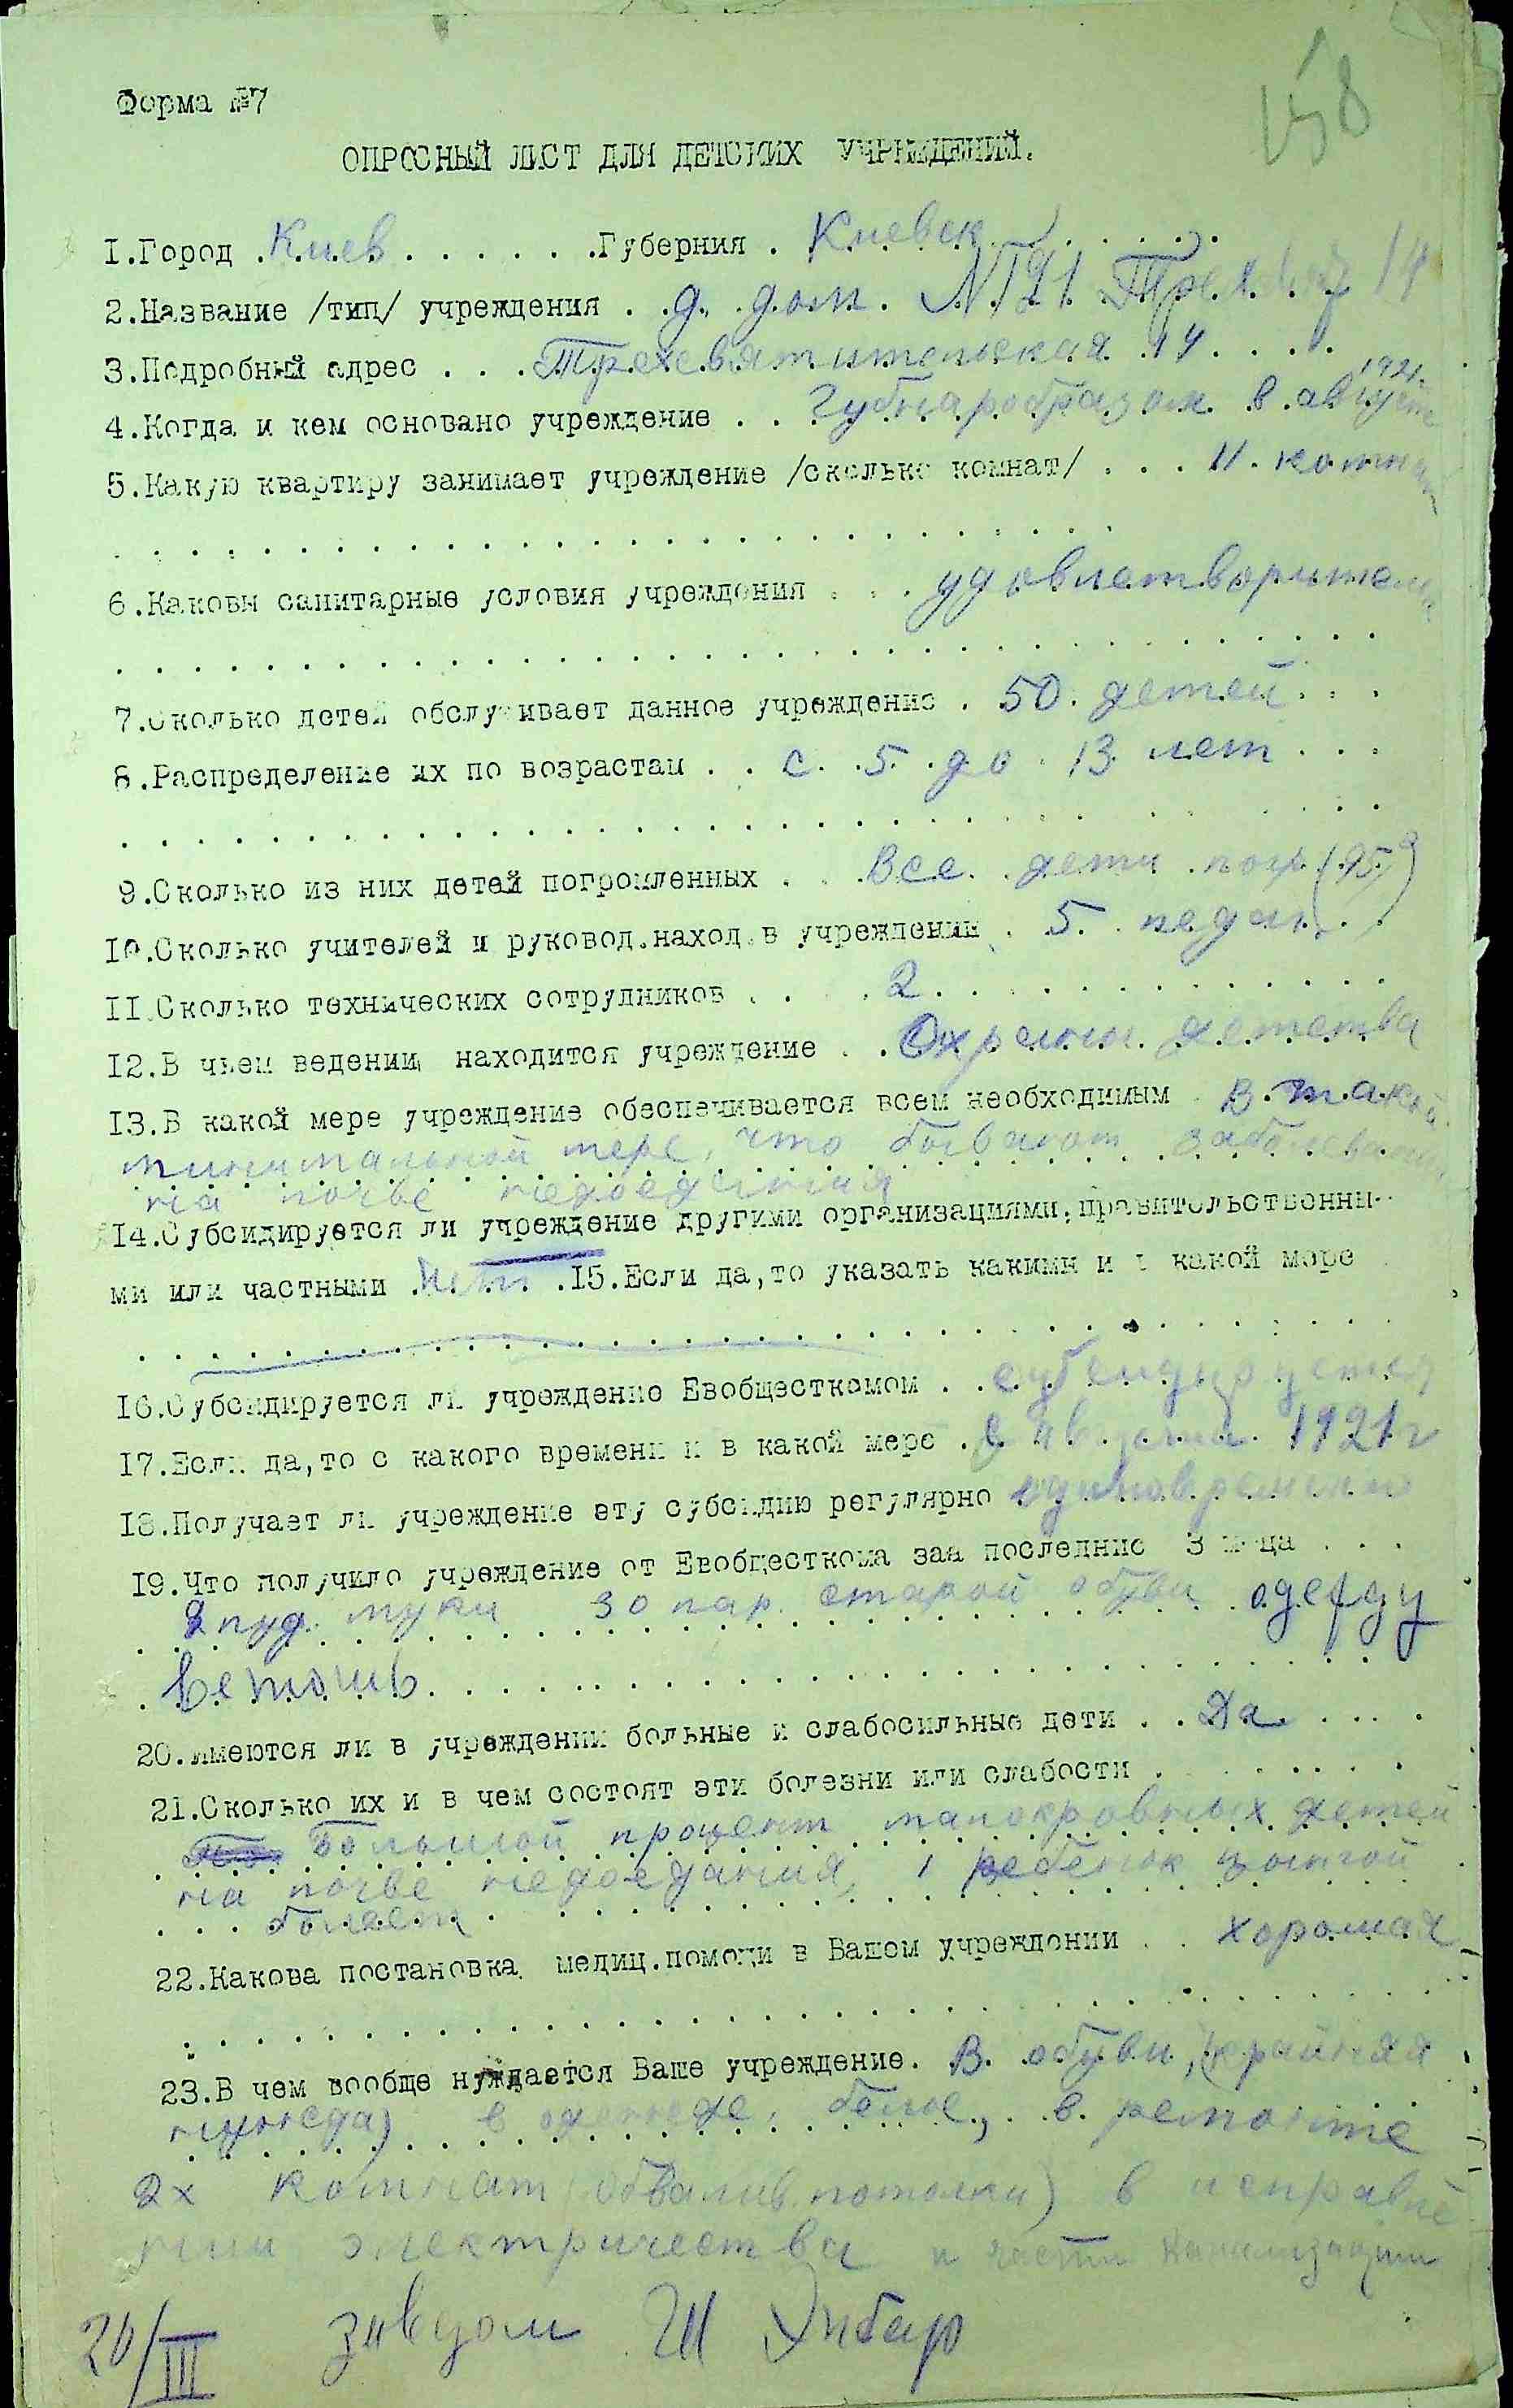 158
Форма №7
ОПРОСНЫЙ ЛИСТ ДЛЯ ДЕТСКИХ УЧРЕЖДЕНИЙ.
1.Город . Киев . . . . . .Губерния . Киевск . . . . .
2.Название /тип/ учреждения . . д. дом. №121 14
3.Подробный адрес . . . Трехсвятительская 14 . . . .
4.Когда и кем основано учреждение . . . Губнаробразом в августе 1921
5.Какую квартиру занимает учреждение /сколько комнат/ . . . 11 комнат
6.Каковы санитарные условия учреждения . . . удовлетворительн
7.Сколько детей обслуживает данное учреждение . 50 детей . . .
8.Распределение их по возрастам . . с 5 до 13 лет . . .
9.Сколько из них детей погромленных . . Все дети погр (95%)
10.Сколько учителей и руковод.наход.в учреждении . 5 педаг. . .
11.Сколько технических сотрудников . . . . 2 . . . . . . . .
12.В чьем ведении находится учреждение . . Охраны детства
13.В какой мере учреждение обеспечивается всем необходимым . В такой
минимальной мере, что бывают заболевания
на почве недоедания
14.Субсидируется ли учреждение другими организациями,правительственны-
ми или частными . Нет . 15.Если да,то указать какими и в какой мере
16.Субсидируется ли учреждение Евобщесткомом . . субсидируется
17.Если да,то с какого времени и в какой мере . С августа 1921 г
18.Получает ли учреждение эту субсидию регулярно одновременно
19.Что получило учреждение от Евобщесткома заа последние 3 м-ца . . .
2 пуд. муки 30 пар. старой обуви одежду
ветошь
20.Имеются ли в учреждении больные и слабосильные дети . . Да . . . .
21.Сколько их и в чем состоят эти болезни или слабости . . . . . . .
Большой процент малокровных детей
на почве недоедания, 1 ребенок
болеет
22.Какова постановка медиц.помощи в Вашем учреждении . . хорошая
23.В чем вообще нуждается Ваше учреждение. В обуви, (крайняя
нужда) в одежде, белье, в ремонте
2х комнат (обвалив. потолки) в исправле
нии электричества и части канализации
26/III завдом Ш